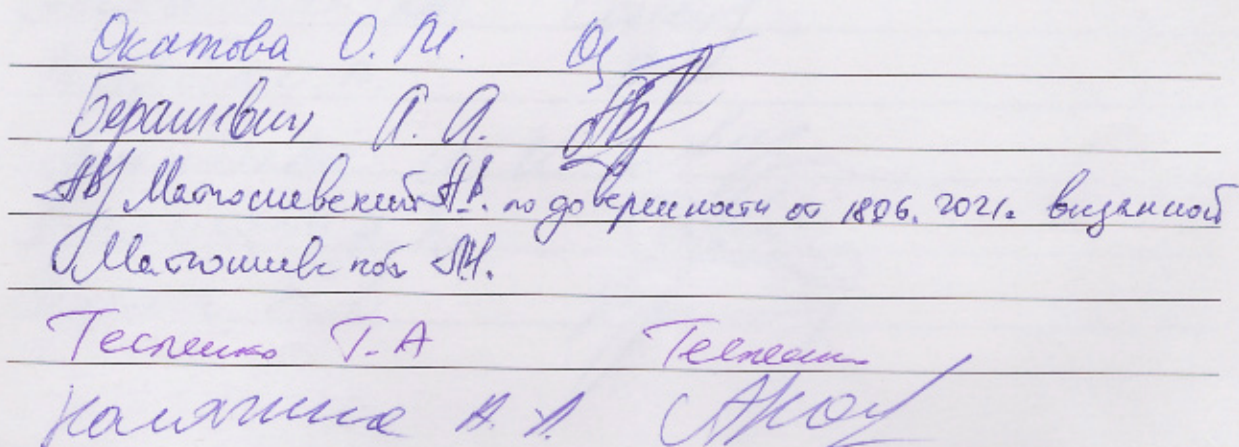 Окатова О. М.
Берашевич А. А.
Матюшевский А.В. по доверенности от 18.06.2021г. выданной
Матюшевской Л.Н.
Теспенко Т.А Теспенко
Калягина А. А.